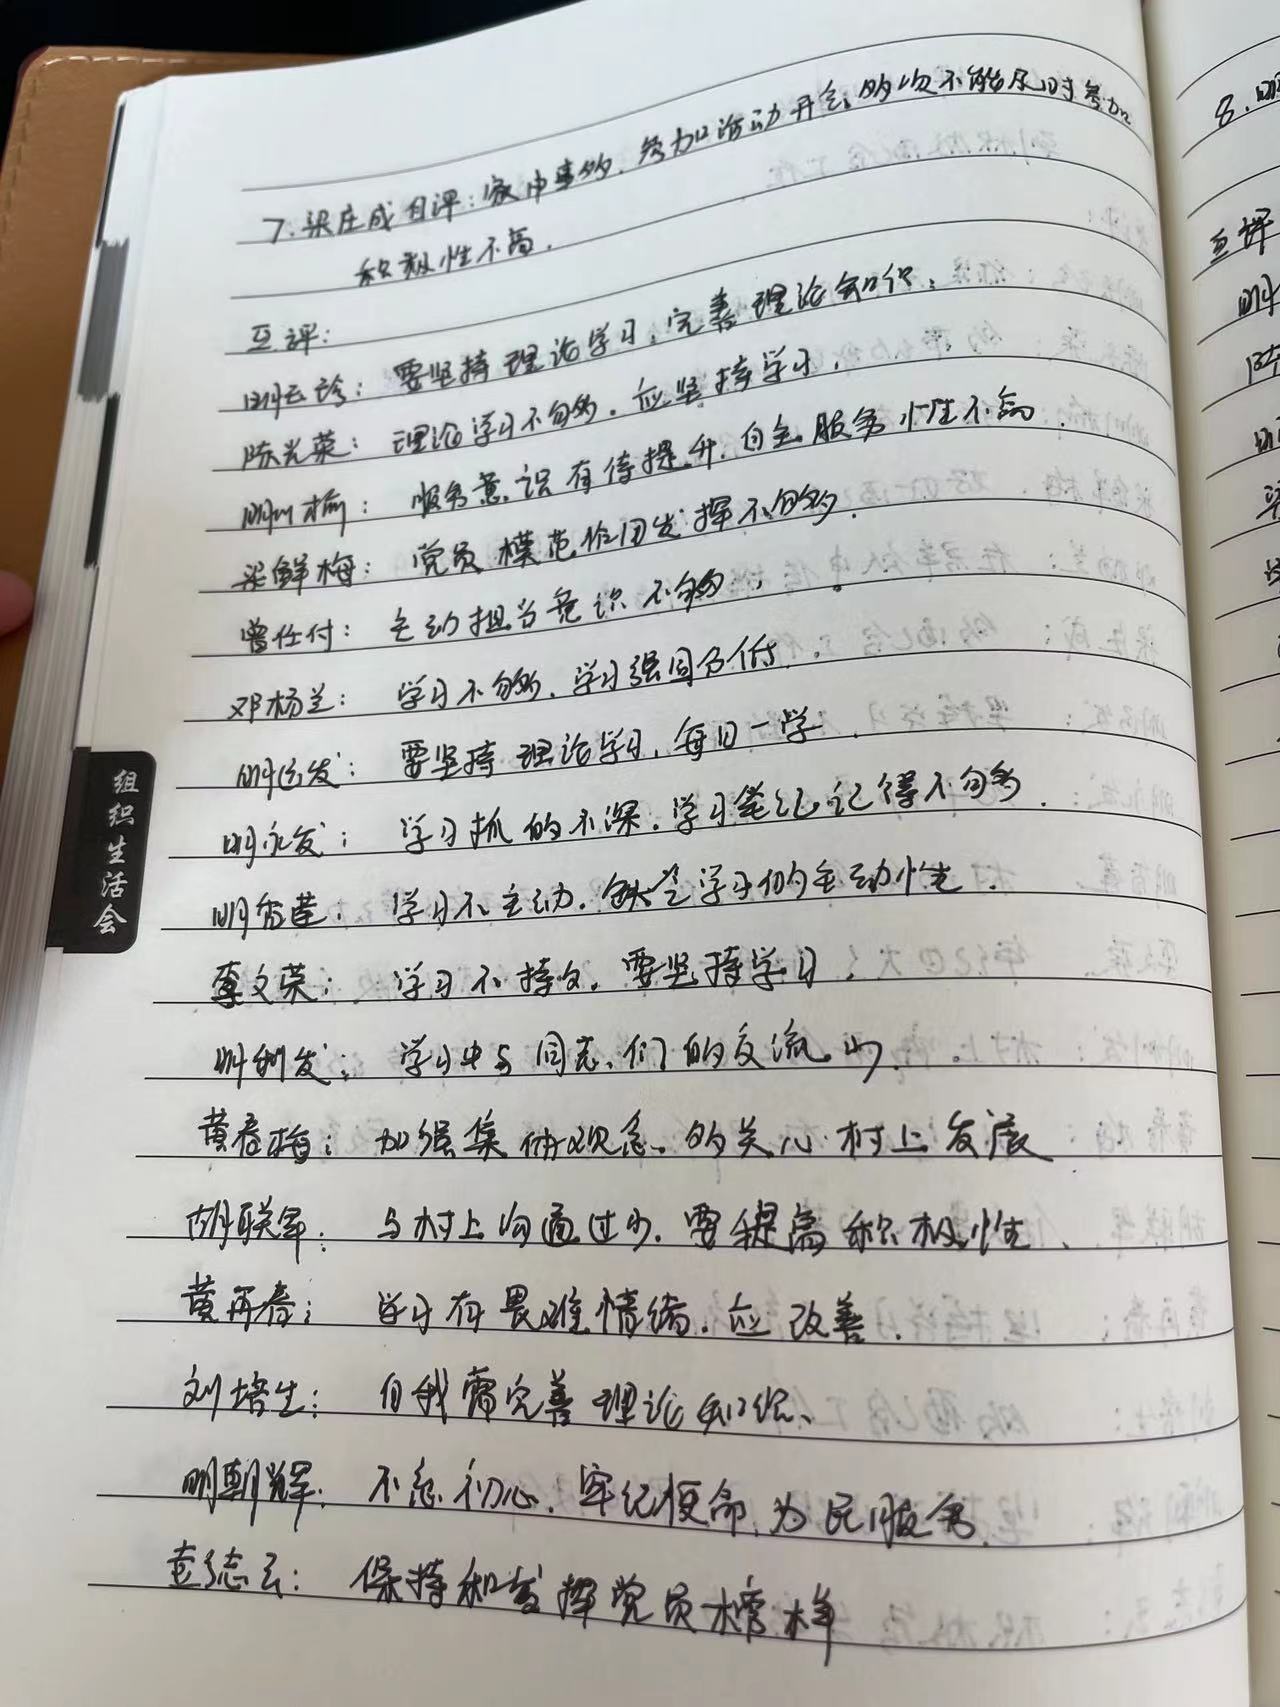 7.梁庄成自评:家中事多,参加活动开会,多次不能及时参加
积极性不高.
互评:
明云珍:要坚持理论学习,完善理论知识,
陈光荣:理论学习不够多.应坚持学习,
明小榆:服务意识有待提升,自主服务性不高.
梁鲜梅:党员模范作用发挥不够.
曾任付:主动担当意识不够,
邓杨兰:学习不够,学习强国分低.
明运发:要坚持理论学习,每日一学.
明永发:学习抓的不深,学习笔记记得不够多.
明香莲.学习不主动,缺乏学习的主动性.
李文荣:学习不持久,要坚持学习.
明利发:学习中与同志们的交流少.
黄春梅:加强集体观念.多关心村上发展
胡联军:与村上沟通过少.要提高积极性、
黄再春:学习有畏难情绪,应改善.
刘培生:自我需完善理论知识、
明朝辉.不忘初心.牢记使命.为民服务.
志云:保持和发挥党员榜样
组织生活会
8.明
互评
明
陈
明
梁